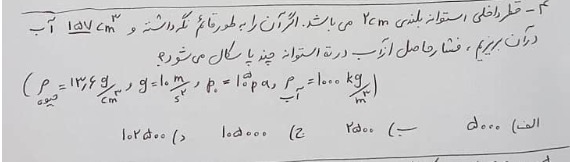 ۴- قطر داخلی استوانه بلندی ۲cm می باشد. اگر آن را به طور قائم نگه داشته و ۱۵۷ cm³ آب
در آن بریزیم، فشار حاصل از آب در ته استوانه چند پاسکال می شود؟
(ρ جیوه = ۱۳٫۶ g/cm³ , g = ۱۰ m/s² , p₀ = ۱۰⁵ pa , ρ آب = ۱۰۰۰ kg/m³)
الف) ۵۰۰۰ ب) ۲۵۰۰ ج) ۱۰۵۰۰۰ د) ۱۰۲۵۰۰